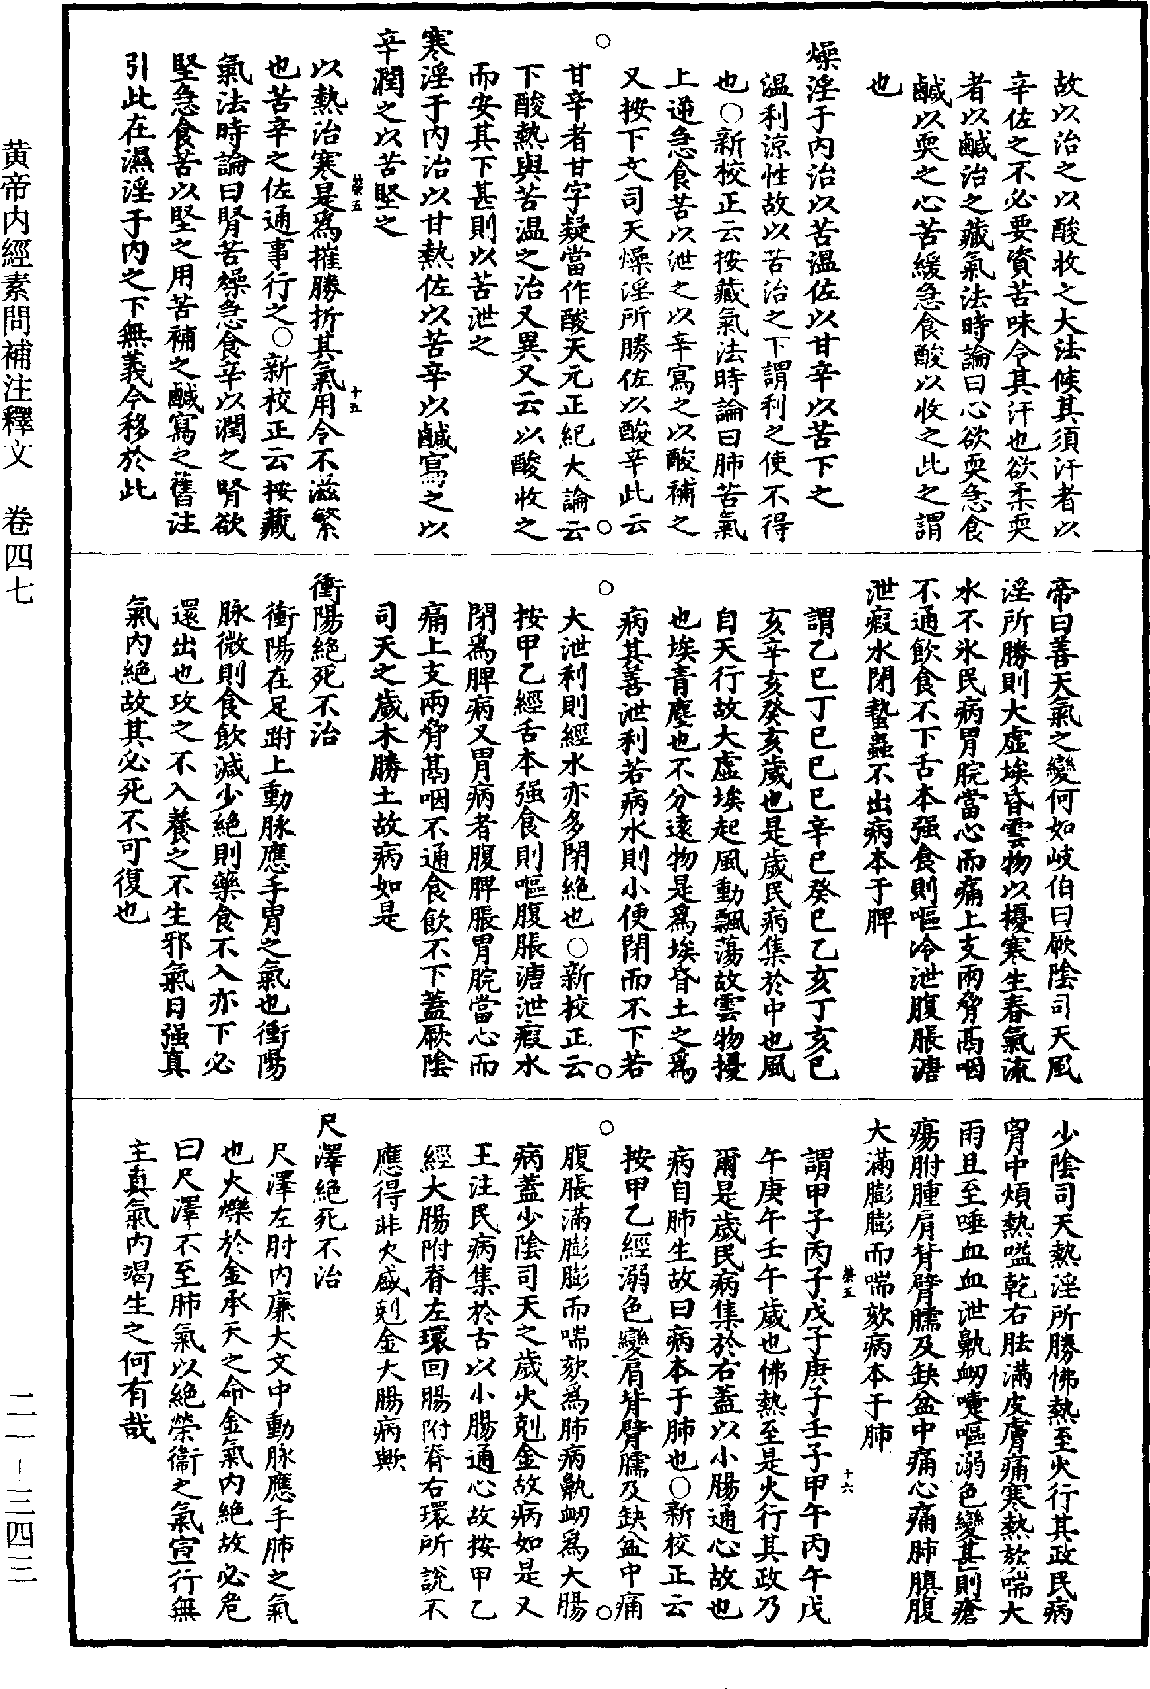 故以治之以酸收之大法候其須汗者以
辛佐之不必要資苦味令其汗也欲柔耎
者以鹹治之藏氣法時論曰心欲耎急食
鹹以耎之心苦緩急食酸以收之此之謂
也
燥淫于内治以苦溫佐以甘辛以苦下之
溫利涼性故以苦治之下謂利之使不得
也○新校正云按藏氣法時論曰肺苦氣
上逆急食苦以泄之以辛寫之以酸補之
又按下文司天燥淫所勝佐以酸辛此云
甘辛者甘字疑當作酸天元正紀大論云
下酸熱與苦溫之治又異又云以酸收之
而安其下甚則以苦泄之
寒淫于内治以甘熱佐以苦辛以鹹寫之以
辛潤之以苦堅之
以熱治寒是爲摧勝折其氣用令不滋繁
也苦辛之佐通事行之○新校正云按藏
氣法時論曰腎苦燥急食辛以潤之腎欲
堅急食苦以堅之用苦補之鹹寫之舊注
引此在濕淫于内之下無義今移於此
帝曰善天氣之變何如岐伯曰厥陰司天風
淫所勝則大虛埃昏雲物以擾寒生春氣流
水不氷民病胃脘當心而痛上支兩脅鬲咽
不通飲食不下舌本强食則嘔冷泄腹脹溏
泄瘕水閉蟄蟲不出病本于脾
謂乙巳丁巳己巳辛巳癸巳乙亥丁亥己
亥辛亥癸亥歲也是歲民病集於中也風
自天行故大虛埃起風動飄蕩故雲物擾
也埃青塵也不分遠物是爲埃昏土之爲
病其善泄利若病水則小便閉而不下若
大泄利則經水亦多閉絶也○新校正云
按甲乙經舌本强食則嘔腹脹溏泄瘕水
閉爲脾病又胃病者腹脾脹胃脘當心而
痛上支兩脅鬲咽不通食飲不下蓋厥陰
司天之歲木勝土故病如是
衝陽絶死不治
衝陽在足跗上動脉應手胃之氣也衝陽
脉微則食飲減少絶則藥食不入亦下必
還出也攻之不入養之不生邪氣日强真
氣内絶故其必死不可復也
少陰司天熱淫所勝怫熱至火行其政民病
胷中煩熱嗌乾右胠滿皮膚痛寒熱欬喘大
雨且至唾血血泄鼽衂嚏嘔溺色變甚則瘡
瘍胕腫肩背臂臑及缺盆中痛心痛肺䐜腹
大滿膨膨而喘欬病本于肺
謂甲子丙子戊子庚子壬子甲午丙午戊
午庚午壬午歲也怫熱至是火行其政乃
爾是歲民病集於右蓋以小腸通心故也
病自肺生故曰病本于肺也○新校正云
按甲乙經溺色變肩背臂臑及缺盆中痛
腹脹滿膨膨而喘欬爲肺病鼽衂爲大腸
病蓋少陰司天之歲火剋金故病如是又
王注民病集於右以小腸通心故按甲乙
經大腸附脊左環回腸附脊右環所說不
應得非火盛剋金大腸病歟
尺澤絶死不治
尺澤左肘内廉大文中動脉應手肺之氣
也火爍於金承天之命金氣内絶故必危
曰尺澤不至肺氣以絶榮衞之氣宣行無
主真氣内竭生之何有哉
黄帝内經素問補注釋文　卷四七
二一－三四三
榮五
十五
榮五
十六